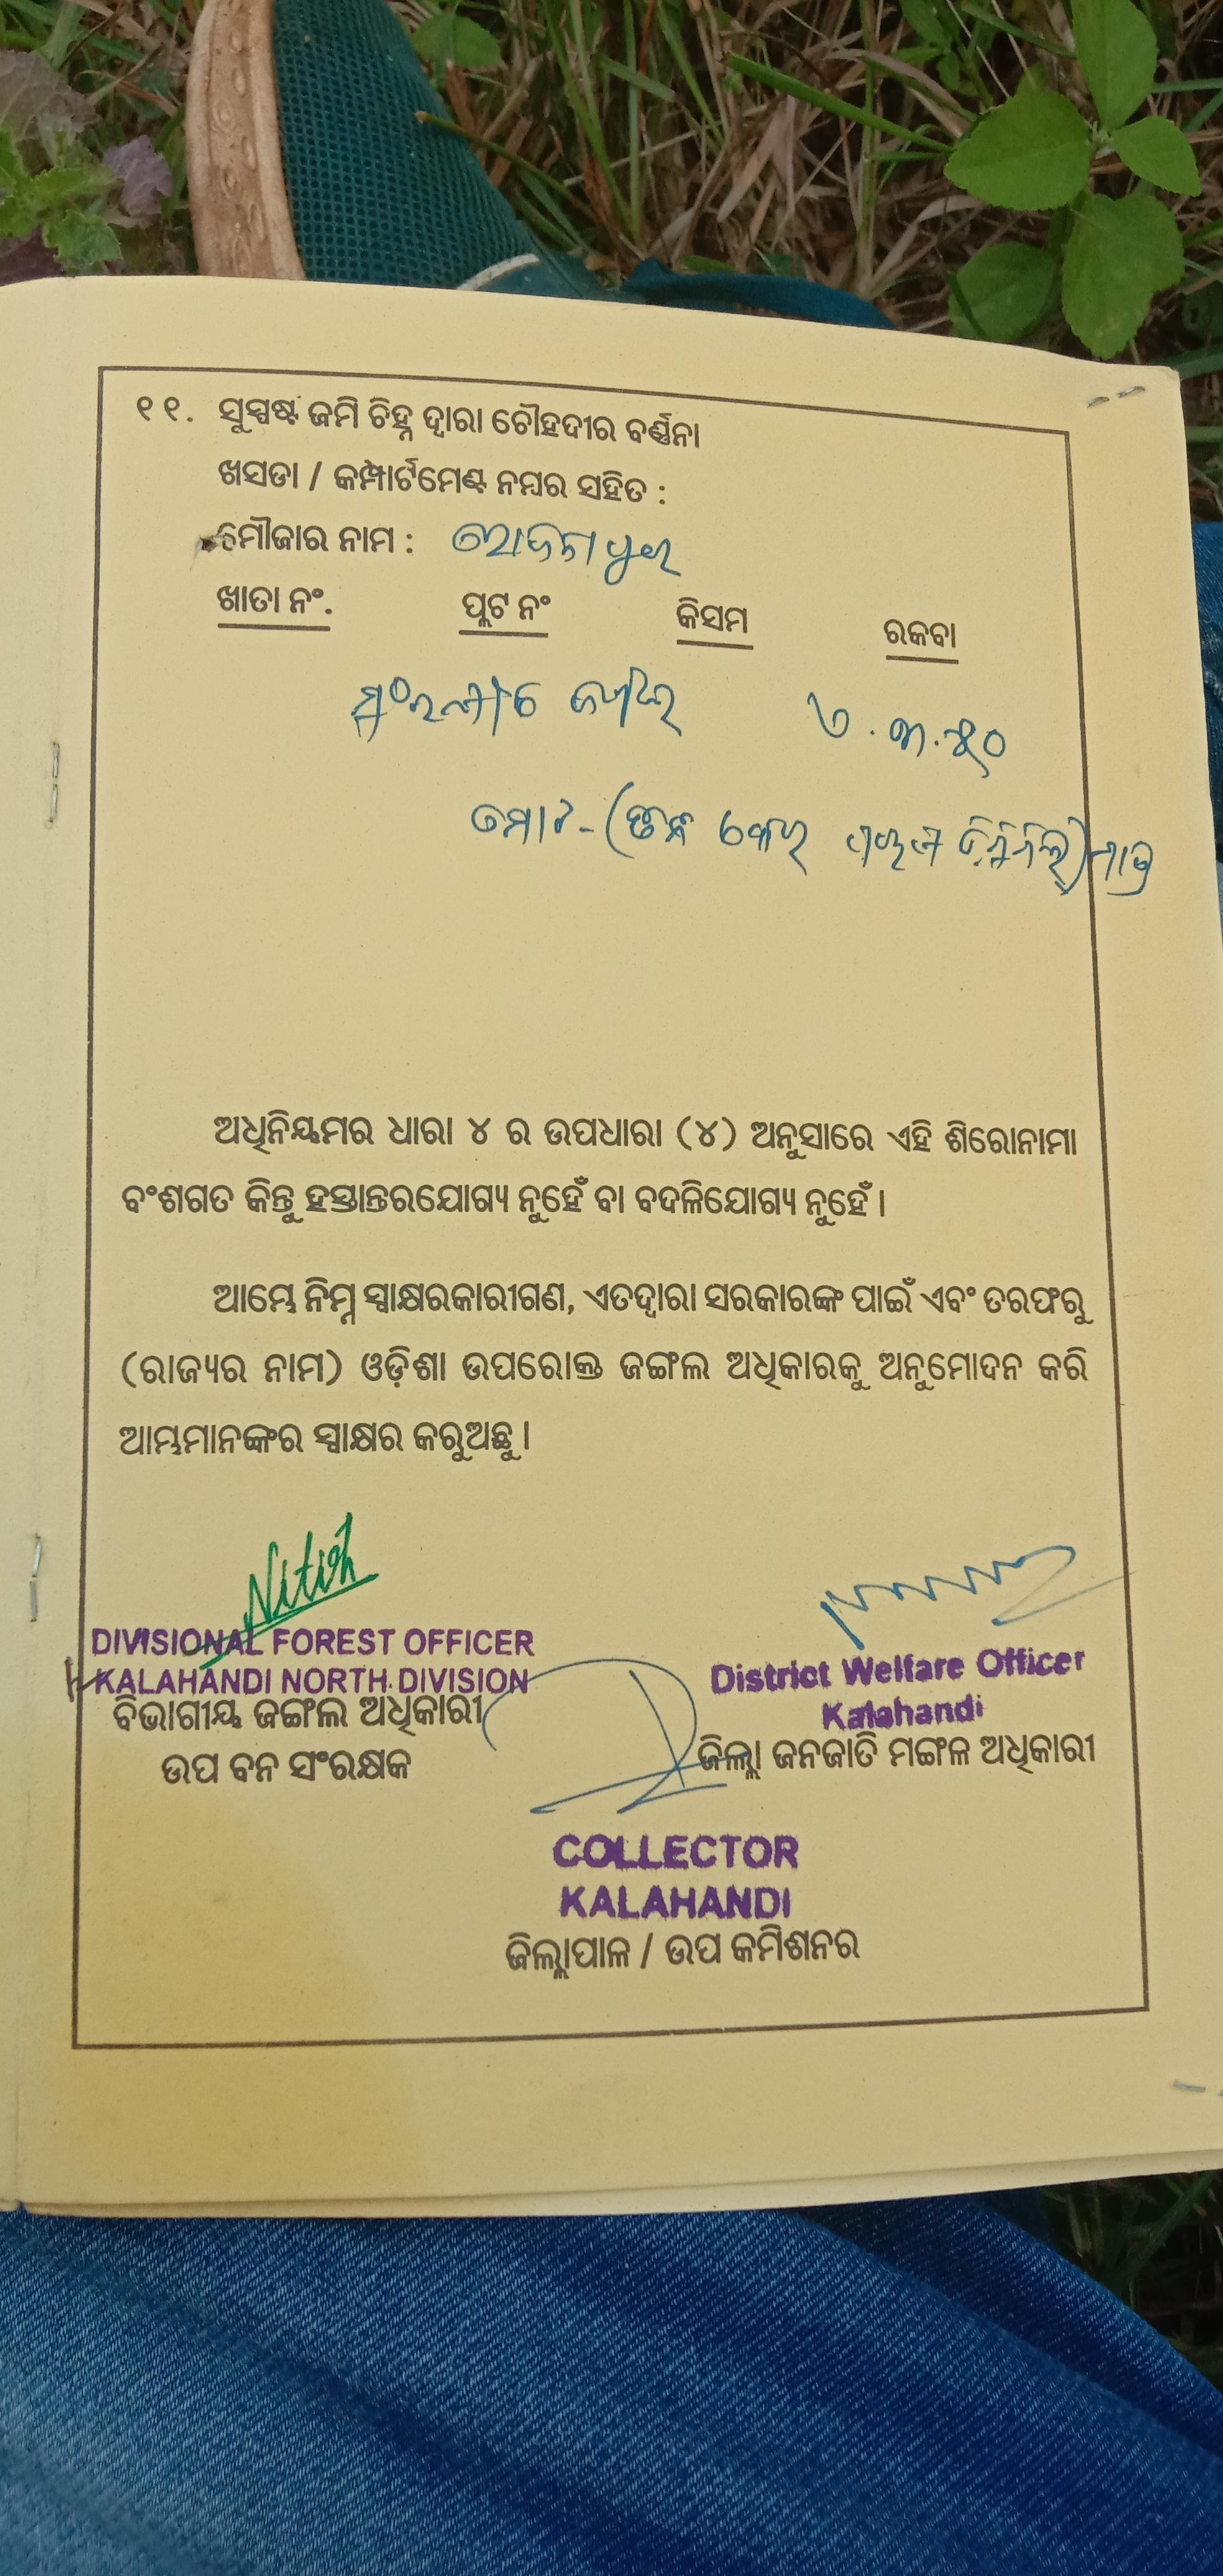 ୧୧. ସୁସ୍ପଷ୍ଟ ଜମି ଚିହ୍ନ ଦ୍ୱାରା ଚୌହଦୀର ବର୍ଣ୍ଣନା
ଖସଡା / କମ୍ପାର୍ଟମେଣ୍ଟ ନମ୍ବର ସହିତ :
ମୌଜାର ନାମ :
ଖାତା ନଂ. ପ୍ଲଟ ନଂ କିସମ ରକବା
ମୋଟ-
ଅଧିନିୟମର ଧାରା ୪ ର ଉପଧାରା (୪) ଅନୁସାରେ ଏହି ଶିରୋନାମା
ବଂଶଗତ କିନ୍ତୁ ହସ୍ତାନ୍ତରଯୋଗ୍ୟ ନୁହେଁ ବା ବଦଳିଯୋଗ୍ୟ ନୁହେଁ।
ଆମ୍ଭେ ନିମ୍ନ ସ୍ୱାକ୍ଷରକାରୀଗଣ, ଏତଦ୍ୱାରା ସରକାରଙ୍କ ପାଇଁ ଏବଂ ତରଫରୁ
(ରାଜ୍ୟର ନାମ) ଓଡ଼ିଶା ଉପରୋକ୍ତ ଜଙ୍ଗଲ ଅଧିକାରକୁ ଅନୁମୋଦନ କରି
ଆମ୍ଭମାନଙ୍କର ସ୍ୱାକ୍ଷର କରୁଅଛୁ।
Nitish
DIVISIONAL FOREST OFFICER
KALAHANDI NORTH DIVISION
ବିଭାଗୀୟ ଜଙ୍ଗଲ ଅଧିକାରୀ
ଉପ ବନ ସଂରକ୍ଷକ
District Welfare Officer
Kalahandi
ଜିଲ୍ଲା ଜନଜାତି ମଙ୍ଗଳ ଅଧିକାରୀ
COLLECTOR
KALAHANDI
ଜିଲ୍ଲାପାଳ / ଉପ କମିଶନର